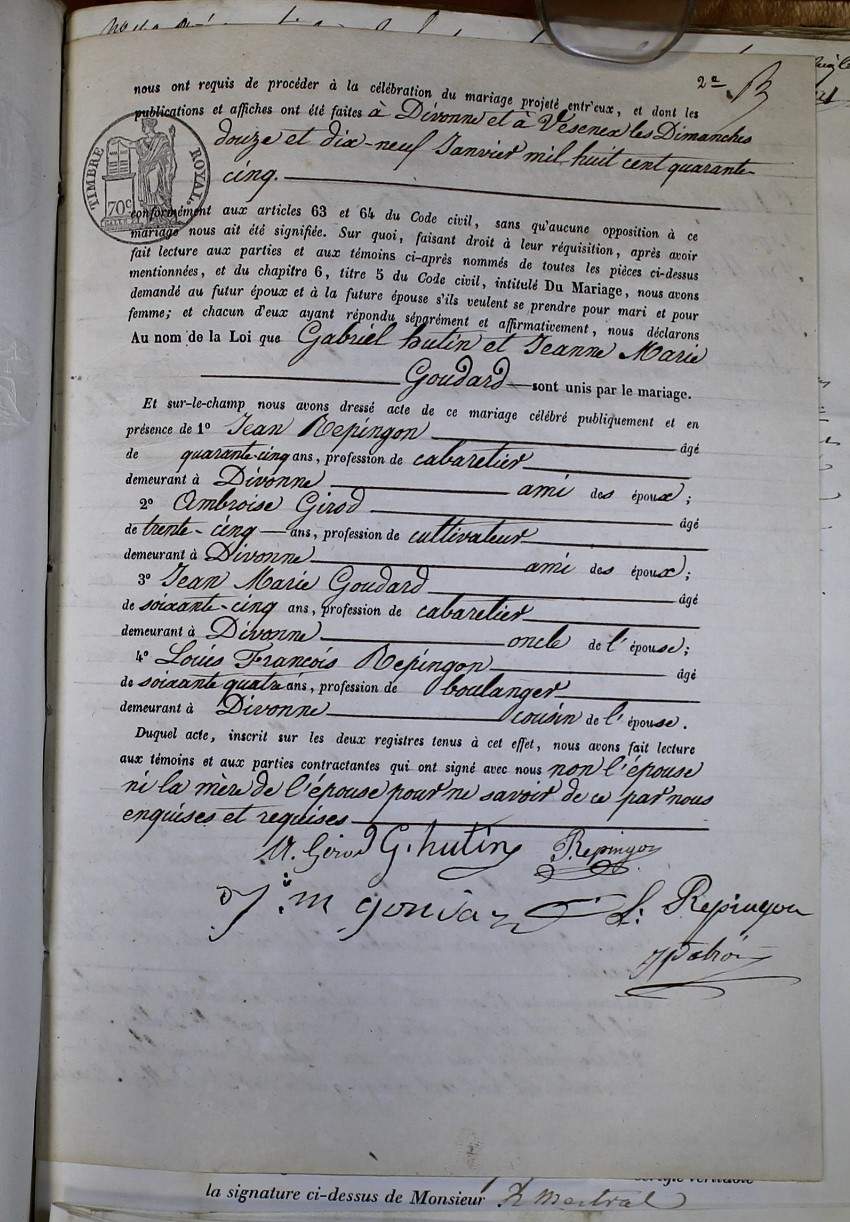 2e
nous ont requis de procéder à la célébration du mariage projeté entr'eux, et dont les
publications et affiches ont été faites à Divonne et à Vésenex les Dimanches
douze et dix-neuf Janvier mil huit cent quarante-
cinq.
TIMBRE ROYAL
70c
conformément aux articles 63 et 64 du Code civil, sans qu'aucune opposition à ce
mariage nous ait été signifiée. Sur quoi, faisant droit à leur réquisition, après avoir
fait lecture aux parties et aux témoins ci-après nommés de toutes les pièces ci-dessus
mentionnées, et du chapitre 6, titre 5 du Code civil, intitulé Du Mariage, nous avons
demandé au futur époux et à la future épouse s'ils veulent se prendre pour mari et pour
femme; et chacun d'eux ayant répondu séparément et affirmativement, nous déclarons
Au nom de la Loi que Gabriel hutin et Jeanne Marie
Goudard sont unis par le mariage.
Et sur-le-champ nous avons dressé acte de ce mariage célébré publiquement et en
présence de 1o Jean Repingon âgé
de quarante-cinq ans, profession de cabaretier
demeurant à Divonne ami des époux;
2o Ambroise Girod âgé
de trente-cinq ans, profession de cultivateur
demeurant à Divonne ami des époux;
3o Jean Marie Goudard âgé
de soixante-cinq ans, profession de cabaretier
demeurant à Divonne oncle de l'épouse;
4o Louis François Repingon âgé
de soixante quatre ans, profession de boulanger
demeurant à Divonne cousin de l'épouse.
Duquel acte, inscrit sur les deux registres tenus à cet effet, nous avons fait lecture
aux témoins et aux parties contractantes qui ont signé avec nous non l'épouse
ni la mère de l'épouse pour ne savoir de ce par nous
enquises et requises
A. Girod G. hutin Repingon
j. m goudar L. Repingon
la signature ci-dessus de Monsieur